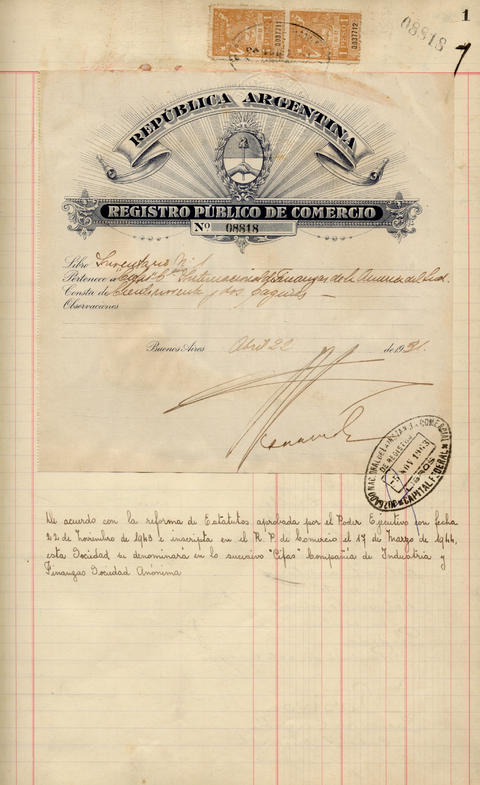 1
08818
003771
0037712
REPÚBLICA ARGENTINA
REGISTRO PÚBLICO DE COMERCIO
Nº 08818
Libro Inventario Nº 1
Pertenece a Cía Internacional de Finanzas de la America del Sud.
Consta de Ciento noventa y dos páginas.—
Observaciones
Buenos Aires Abril 22 de 1931.
JUZGADO NACIONAL DE 1ª INSTANCIA COMERCIAL
DE REGISTRO
NOV 1963
LIBROS
CAPITAL FEDERAL
De acuerdo con la reforma de Estatutos aprobada por el Poder Ejecutivo con fecha
24 de Noviembre de 1943 e inscripta en el R. P. de Comercio el 17 de Marzo de 1944,
esta Sociedad se denominará en lo sucesivo "Cifas" Compañía de Industria y
Finanzas Sociedad Anónima